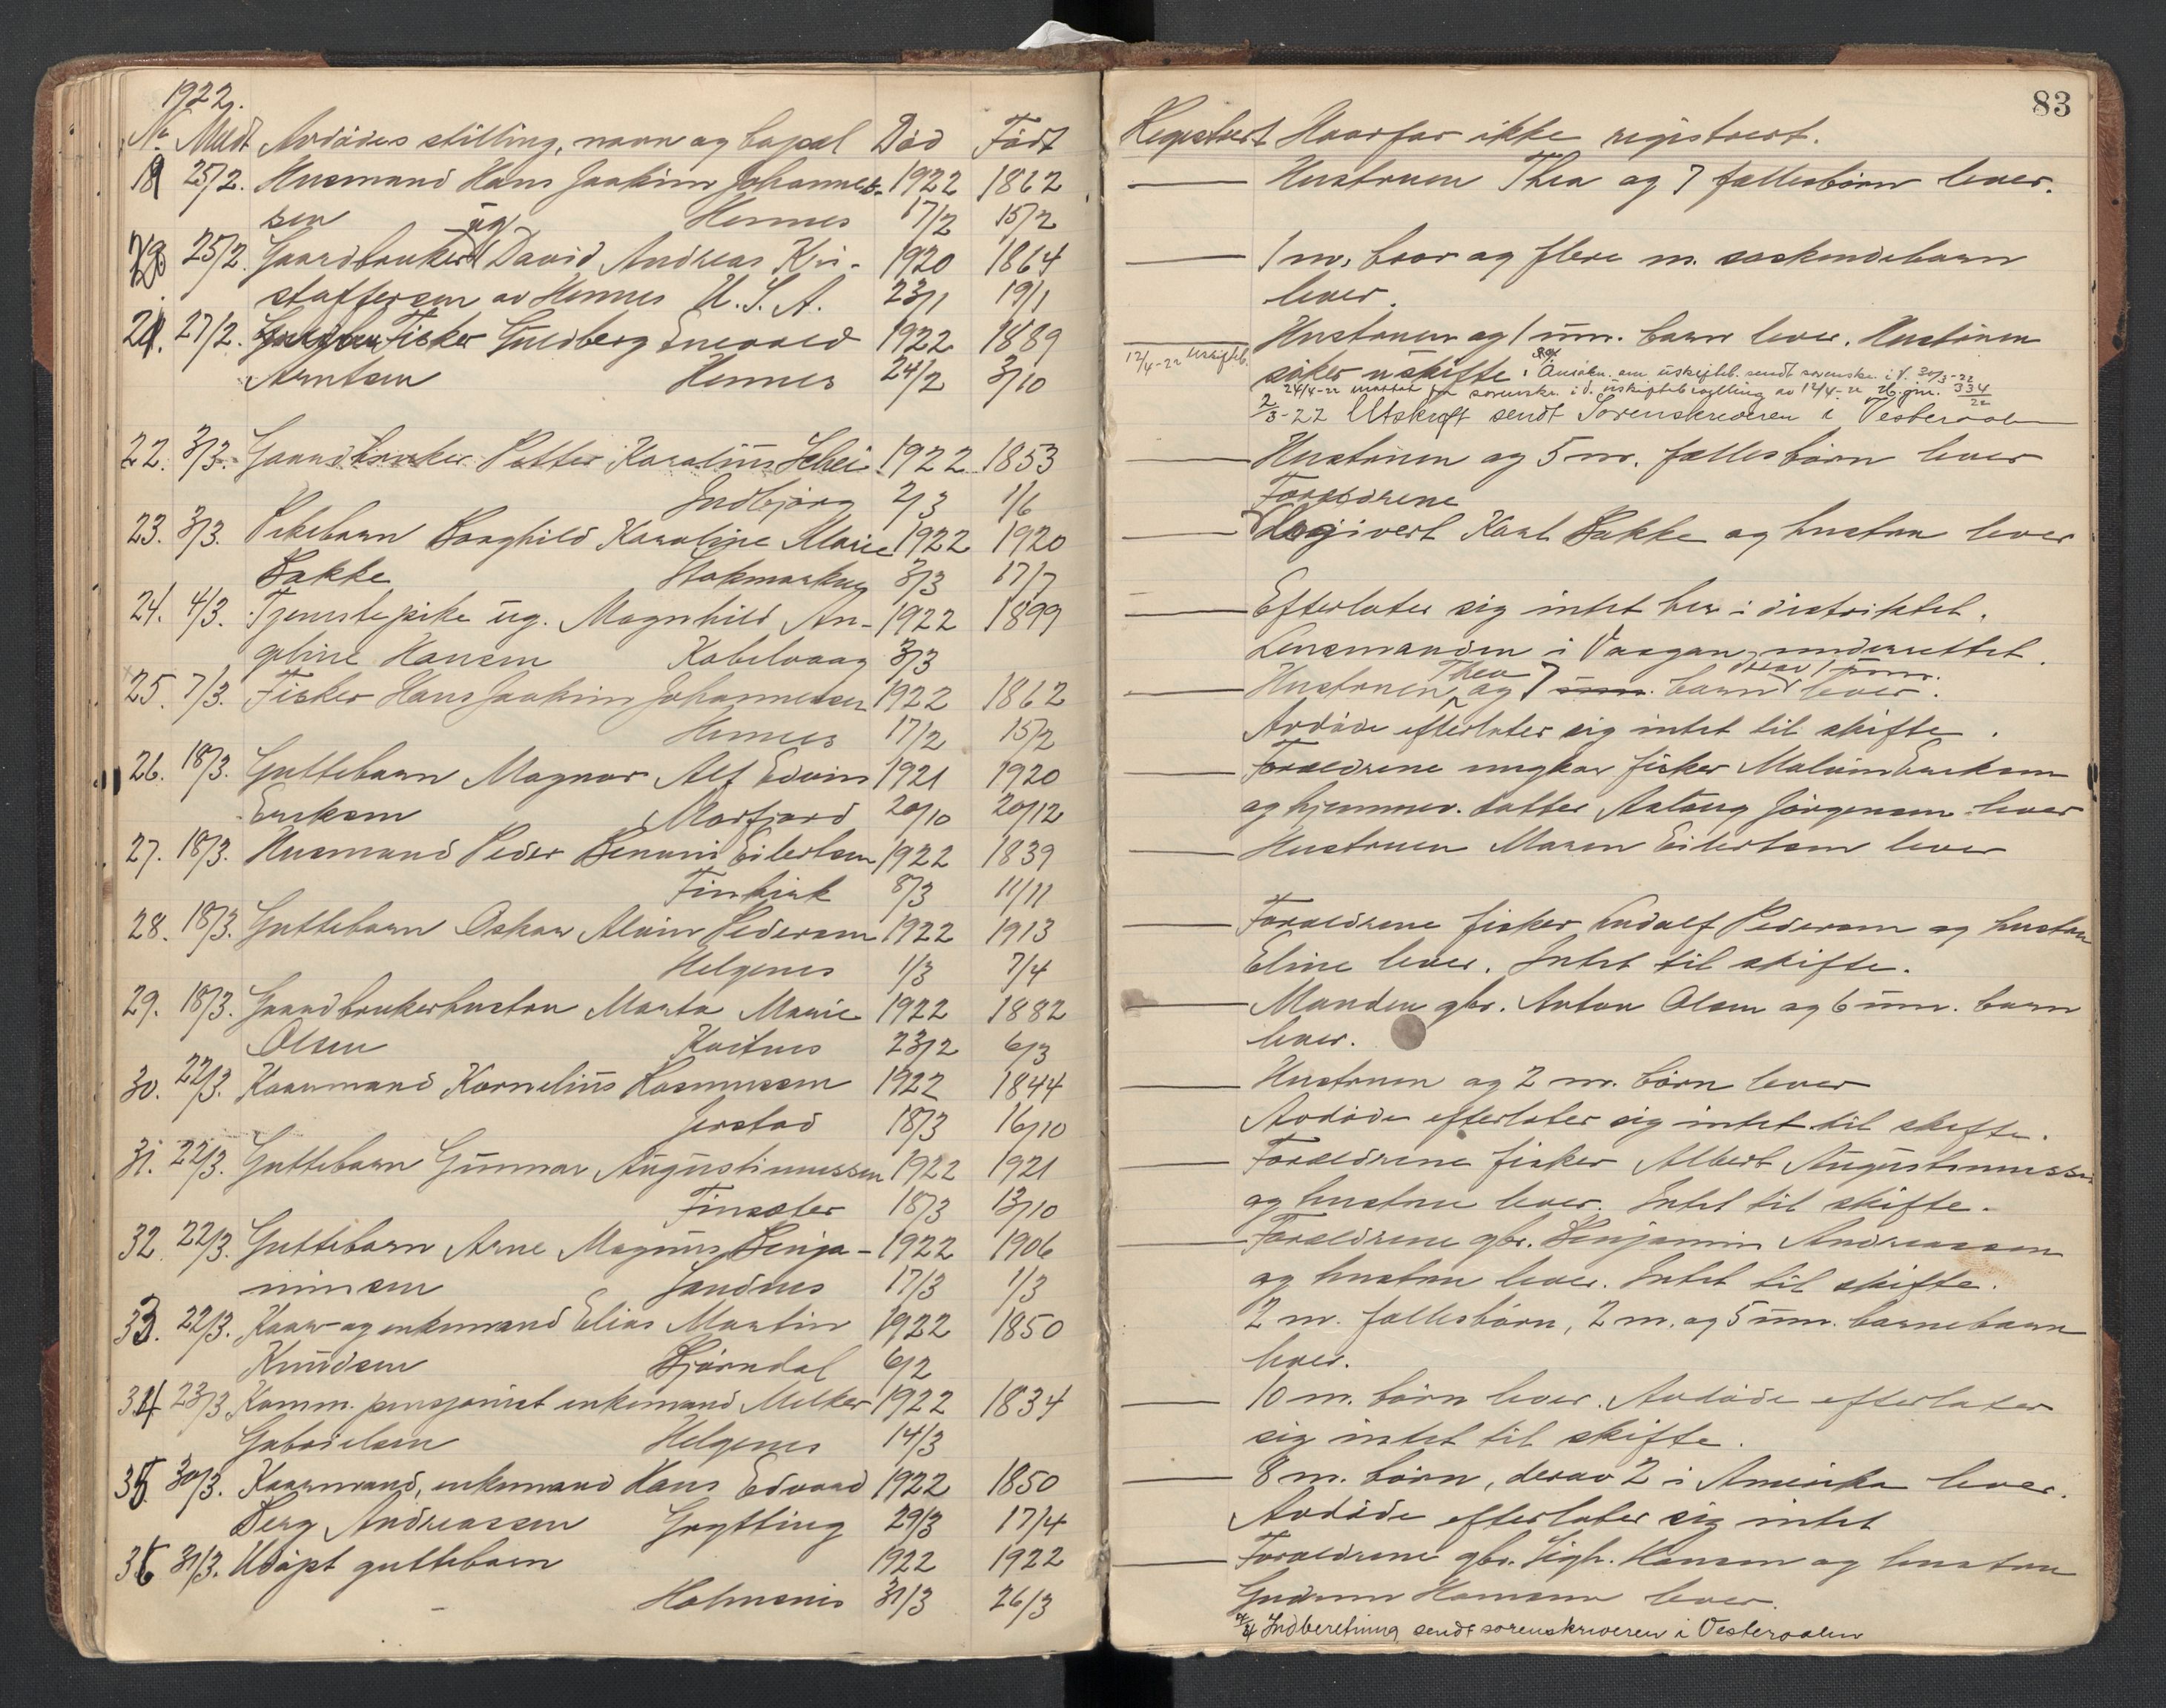 1922.
No Meldt Avdødes stilling, navn og bopæl Død Født
19 25/2. Husmand Hans Joakim Johannes- 1922 1862
sen Hennes 17/2 15/2
20 25/2. Gaardbruker ug. David Andreas Kri- 1920 1864
stoffersen av Hennes U.S.A. 23/1 19/1
21. 27/2. Fisker Guldberg Enevold 1922 1889
Arntsen Hennes 24/2 3/10
22. 3/3. Gaardbruker Petter Karolius Schei 1922 1853
Indbjørg 2/3 1/6
23. 3/3. Pikebarn Borghild Karoline Marie 1922 1920
Bakke Stokmarknes 3/3 17/7
24. 4/3. Tjenestepike ug. Magnhild An- 1922 1899
geline Hansen Kabelvaag 3/3
25. 7/3. Fisker Hans Joakim Johannessen 1922 1862
Hennes 17/2 15/2
26. 18/3. Guttebarn Magnor Alf Edvin 1921 1920
Eriksen Morfjord 20/10 20/12
27. 18/3. Husmand Peder Benoni Eilertsen 1922 1839
8/3 11/11
28. 18/3. Guttebarn Oskar Alvin Pedersen 1922 1913
Helgenes 1/3 7/4
29. 18/3. Gaardbrukerhustru Marta Marie 1922 1882
Olsen Kvitnes 23/2 6/3
30. 22/3. Kaarmand Kornelius Rasmussen 1922 1844
Jerstad 18/3 16/10
31. 22/3. Guttebarn Gunnar Augustinussen 1922 1921
Finsæter 18/3 13/10
32. 22/3. Guttebarn Arne Magnus Benja- 1922 1906
minsen Sandnes 17/3 1/3
33. 22/3. Kaar- og enkemand Elias Martin 1922 1850
Knudsen Bjørndal 6/2
34 23/3 Komm. pensjonist enkemand Melker 1922 1834
Gabrielsen Helgenes 14/3
35. 30/3. Kaarmand, enkemand Hans Edvard 1922 1850
Berg Andreassen Grytting 29/3 17/4
36 31/3. Udøpt guttebarn 1922 1922
Holmsnes 31/3 26/3
83
Registrert Hvorfor ikke registrert.
Hustruen Thea og 7 fællesbørn lever.
1 m. bror og flere m. søskendebarn
lever.
Hustruen og 1 um. barn lever. Hustruen
12/4-22 Uskifteb. søker uskifte. Ansøkn. om uskifteb. sendt sorenskr. i V. 30/3-22
24/4-22 mottat fra sorenskr. i V. uskiftebevilling av 12/4-22 334/22
2/3-22 Utskrift sendt Sorenskriveren i Vesteraalen
Hustruen og 5 m. fællesbørn lever
Forældrene
Karl Bakke og hustru lever
Efterlater sig intet her i distriktet.
Lensmanden i Vaagan underrettet.
Hustruen Thea og 7 barn derav 1 um. lever.
Avdøde efterlater sig intet til skifte.
Forældrene ungkar fisker Malvin Eriksen
og hjemmev. datter Aslaug Jørgensen lever
Hustruen Maren Eilertsen lever
Forældrene fisker Ludolf Pedersen og hustru
Eline lever. Intet til skifte.
Manden gbr. Anton Olsen og 6 um. barn
lever.
Hustruen og 2 m. børn lever
Avdøde efterlater sig intet til skifte.
Forældrene fisker Albert Augustinussen
og hustru lever. Intet til skifte.
Forældrene gbr. Benjamin Andreassen
og hustru lever. Intet til skifte.
2 m. fællesbørn, 2 m. og 5 um. barnebarn
lever.
10 m. børn lever. Avdøde efterlater
sig intet til skifte.
8 m. børn, derav 2 i Amerika lever.
Avdøde efterlater sig intet
Forældrene gbr. Sigh. Hansen og hustru
Gudrun Hansen lever.
4/4 Indberetning sendt sorenskriveren i Vesteraalen